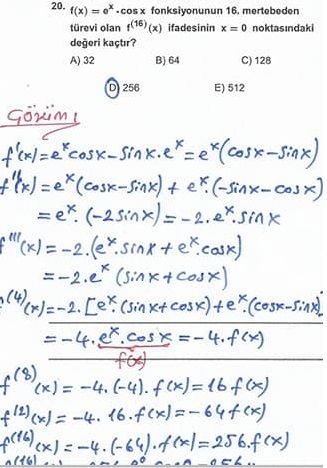 20. f(x) = eˣ . cos x fonksiyonunun 16. mertebeden
türevi olan f⁽¹⁶⁾(x) ifadesinin x = 0 noktasındaki
değeri kaçtır?
A) 32 B) 64 C) 128
D) 256 E) 512
ÇÖZÜM
f'(x)=eˣcosx-sinx.eˣ=eˣ(cosx-sinx)
f''(x)=eˣ(cosx-sinx)+eˣ.(-sinx-cosx)
=eˣ.(-2sinx)=-2.eˣ.sinx
f'''(x)=-2.(eˣ.sinx+eˣ.cosx)
=-2.eˣ(sinx+cosx)
f⁽⁴⁾(x)=-2.[eˣ.(sinx+cosx)+eˣ.(cosx-sinx)]
=-4.eˣ.cosx=-4.f(x)
f(x)
f⁽⁸⁾(x)=-4.(-4).f(x)=16f(x)
f⁽¹²⁾(x)=-4.16.f(x)=-64f(x)
f⁽¹⁶⁾(x)=-4.(-64).f(x)=256.f(x)